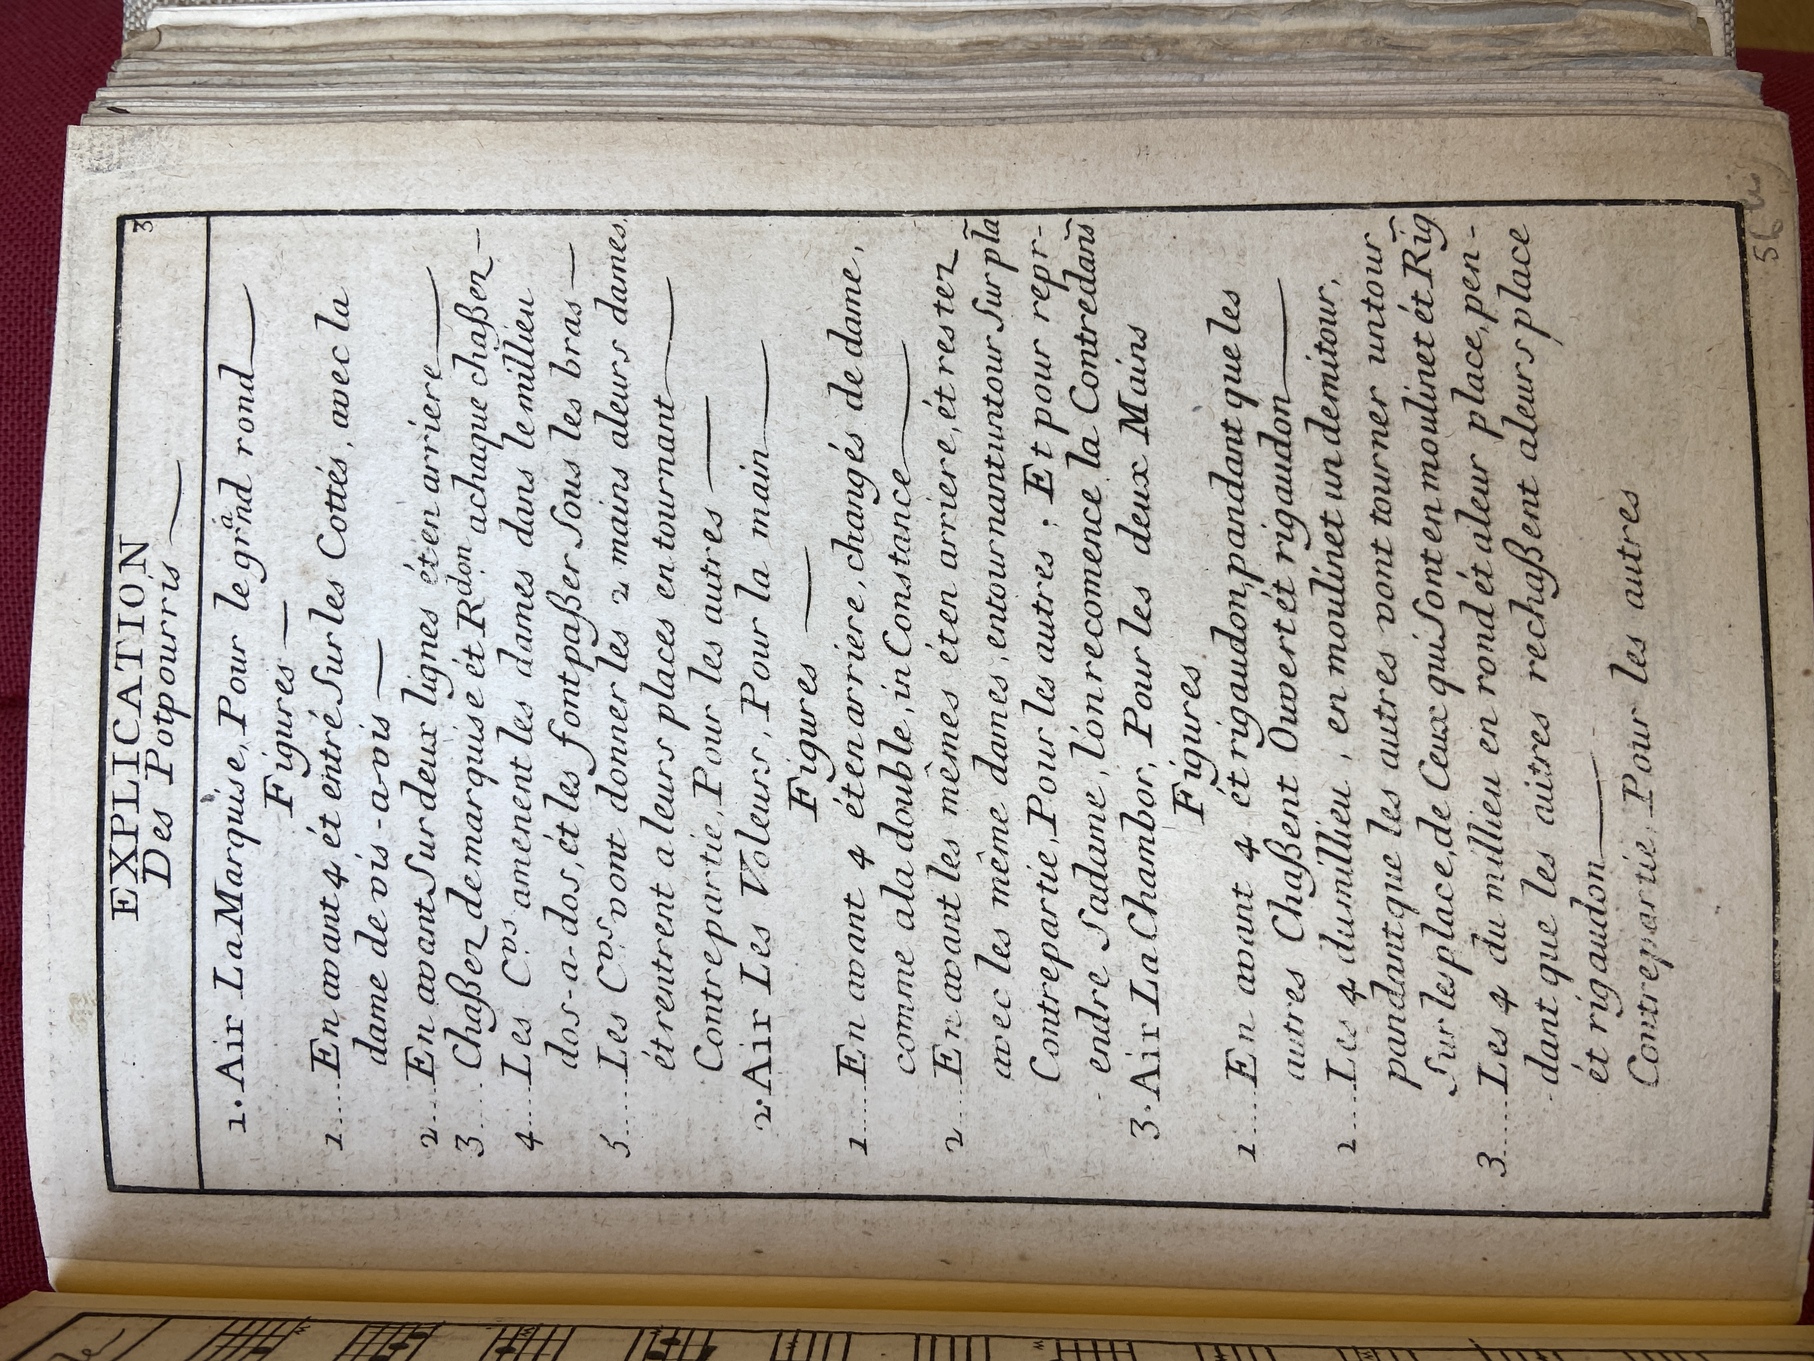 3
EXPLICATION
Des Potpourris
1. Air La Marquise, Pour le grand rond
Figures
1..... En avant 4 ét entré Sur les Cottés, avec la
dame de vis-a-vis
2.... En avant Sur deux lignes ét en arriere
3.... Chaßez de marquise ét Rdon achaque chaßez -
4.... Les Cvs. amenent les dames dans le millieu
dos-a-dos, ét les font paßer Sous les bras
5..... Les Cvs. vont donner les 2 mains aleurs dames.
ét rentrent a leurs places en tournant
Contrepartie, Pour les autres
2. Air Les Voleurs, Pour la main
Figures
1..... En avant 4 ét en arriere, changés de dame,
comme ala double, in Constance
2..... En avant les mêmes ét en arriere, ét restez
avec les même dames, entournant untour Sur pla
Contrepartie, Pour les autres ; Et pour repr-
endre Sadame, l'on recomence la Contredans
3. Air La Chambor, Pour les deux Mains
Figures
1..... En avant 4 ét rigaudon, pandant que les
autres Chaßent Ouvert ét rigaudon
2..... Les 4 dumillieu, en moulinet un demitour,
pandant que les autres vont tourner untour
Sur les place, de Ceux qui Sont en moulinet ét Rig
3...... Les 4 du millieu en rond ét aleur place, pen-
dant que les autres rechaßent aleurs place
ét rigaudon
Contrepartie, Pour les autres
56